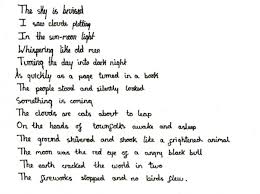 The sky is bruised
I saw clouds plotting
In the sun-moon light
Whispering like old men
Turning the day into dark night
As quickly as a page turned in a book
The people stood and silently looked
Something is coming
The clouds are cats about to leap
On the heads of townfolks awake and asleep
The ground shivered and shook like a frightened animal
The moon was the red eye of a angry black bull
The earth cracked the world in two
The fireworks stopped and no birds flew.